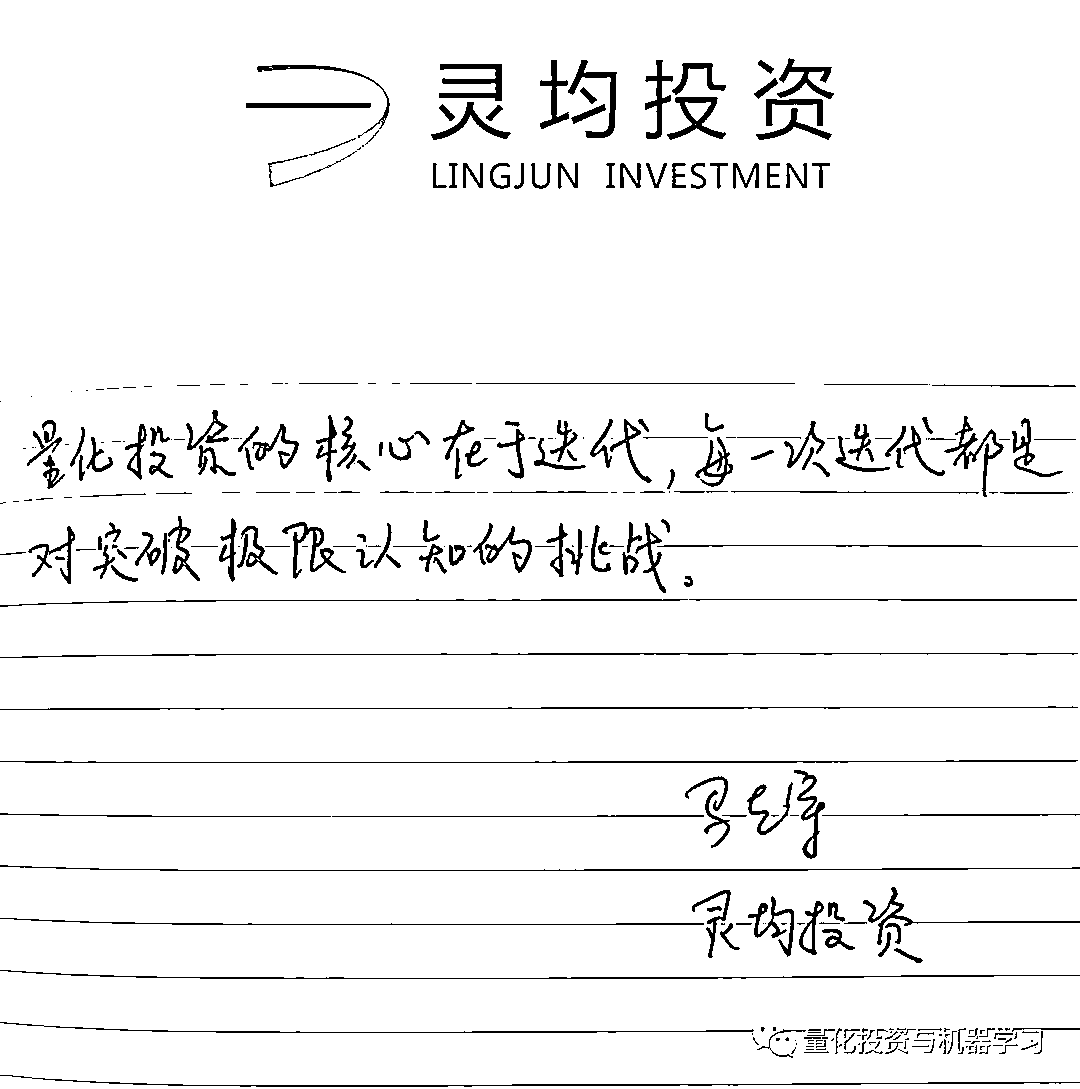 灵均投资
LINGJUN INVESTMENT
量化投资的核心在于迭代,每一次迭代都是
对突破极限认知的挑战。
马志宇
灵均投资
量化投资与机器学习